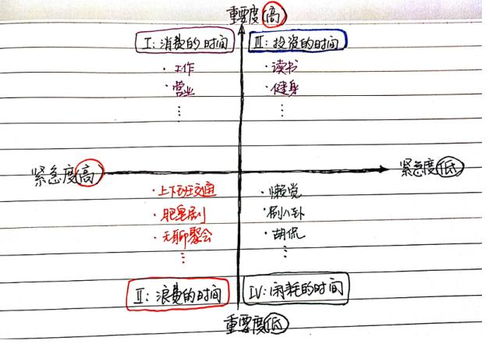 重要度高
I:消费的时间
III:投资的时间
·工作
·读书
·营业
·健身
⋮
⋮
紧急度高
紧急度低
·上下班交通
·懒觉
·肥皂剧
·刷八卦
·无聊聚会
·胡侃
⋮
⋮
II:浪费的时间
IV:闲耗的时间
重要度低